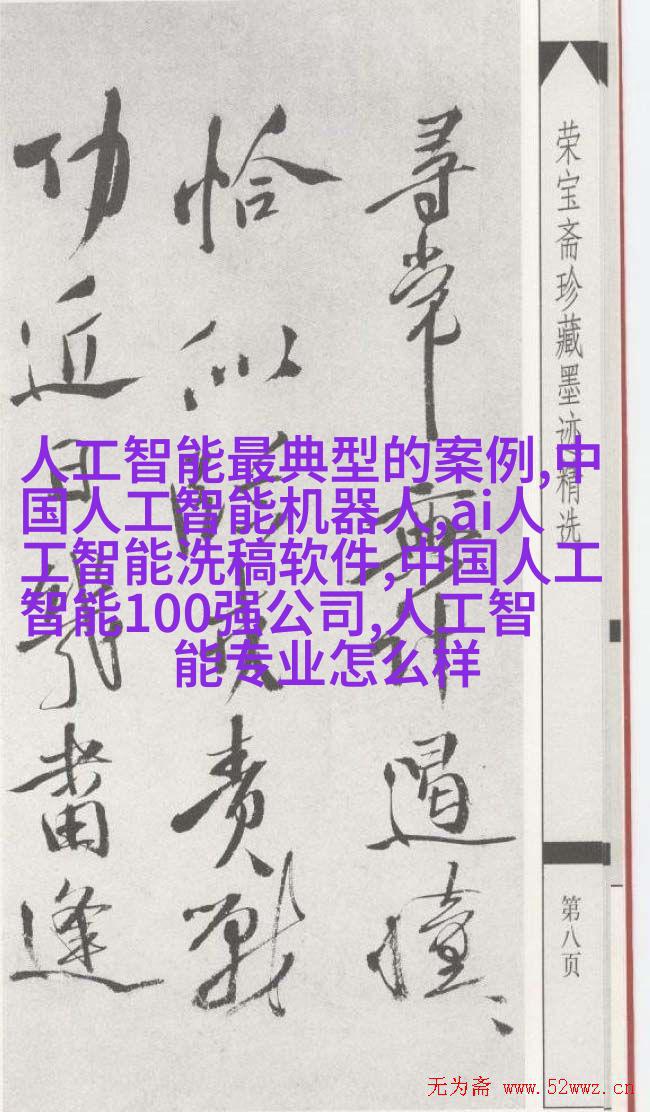 荣宝斋珍藏墨迹精选
第八页
尋常無計遏憧、、
恰似責戰
功近日畬逢
人工智能最典型的案例,中
国人工智能机器人,ai人
工智能洗稿软件,中国人工
智能100强公司,人工智
能专业怎么样
无为斋 www.52wwz.cn